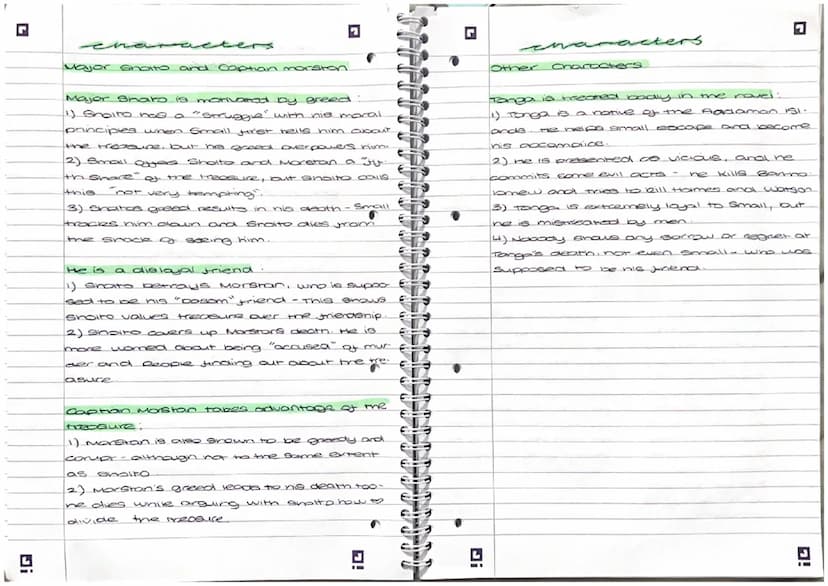 characters
Major Sholto and Captian morstan
Major Sholto is motivated by greed:
1) Sholto has a "struggle" with his moral
principles when Small first tells him about
the treasure, but his greed overpowers him.
2) Small offers Sholto and Morstan a "fif-
th share" of the treasure, but Sholto calls
this "not very tempting".
3) Sholtos greed results in his death - Small
tracks him down and Sholto dies from
the shock of seeing him.
He is a disloyal friend:
1) Sholto betrays Morstan, who is suppo-
sed to be his "bosom" friend - This shows
Sholto values treasure over the friendship.
2) Sholto covers up Morstan's death. He is
more worried about being "accused" of mur-
der and people finding out about the tre-
asure
Captian Morstan takes advantage of the
treasure:
1) Morstan is also shown to be greedy and
corrupt - although not to the same extent
as Sholto
2) Morstan's greed leads to his death too-
he dies while arguing with Sholto how to
divide the treasure.
characters
Other Characters
Tonga is treated badly in the novel:
1) Tonga is a native of the Andaman Isl-
ands. He helps Small escape and become
his accomplice.
2) He is presented as vicious, and he
commits some evil acts - he kills Bartho
lomew and tries to kill Holmes and Watson
3) Tonga is extremely loyal to Small, but
he is mistreated by men.
4) Nobody shows any sorrow or regret at
Tonga's death, not even Small - who was
supposed to be his friend.